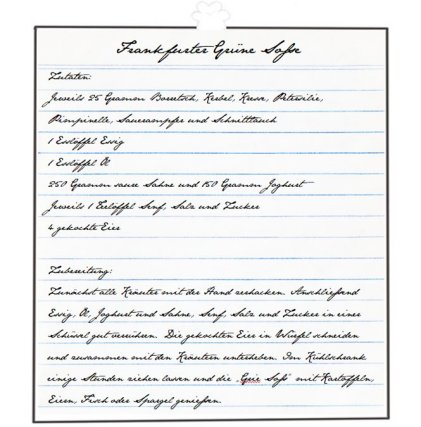 Frankfurter Grüne Soße
Zutaten:
Jeweils 25 Gramm Borretsch, Kerbel, Kresse, Petersilie,
Pimpinelle, Sauerampfer und Schnittlauch
1 Esslöffel Essig
1 Esslöffel Öl
250 Gramm saure Sahne und 150 Gramm Joghurt
Jeweils 1 Teelöffel Senf, Salz und Zucker
4 gekochte Eier
Zubereitung:
Zunächst alle Kräuter mit der Hand zerhacken. Anschließend
Essig, Öl, Joghurt und Sahne, Senf, Salz und Zucker in einer
Schüssel gut verrühren. Die gekochten Eier in Würfel schneiden
und zusammen mit den Kräutern unterheben. Im Kühlschrank
einige Stunden ziehen lassen und die „Grie Soß“ mit Kartoffeln,
Eiern, Fisch oder Spargel genießen.